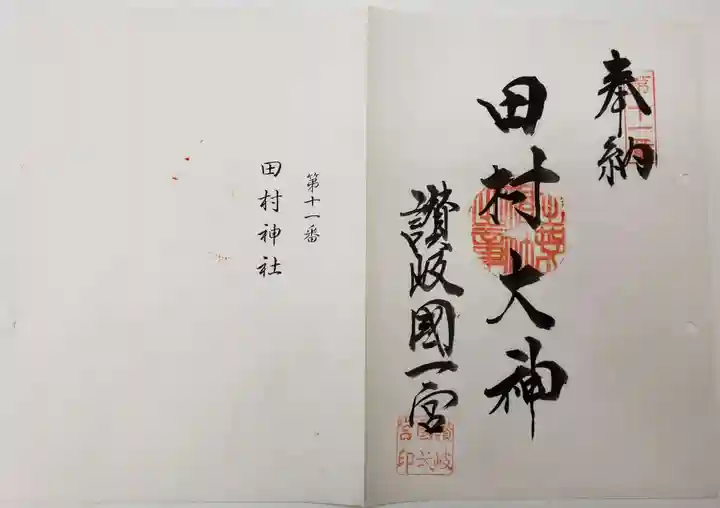 奉納
第十一番
田村大神
讃岐國一宮
第十一番
田村神社